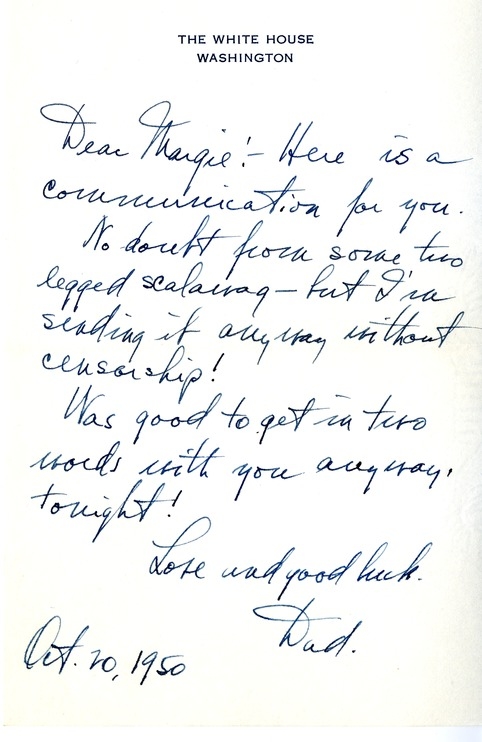 THE WHITE HOUSE
WASHINGTON
Dear Margie:- Here is a
communication for you.
No doubt from some two
legged scalawag - but I'm
sending it anyway without
censorship!
Was good to get in two
words with you anyway,
tonight!
Love and good luck.
Dad.
Oct. 20, 1950